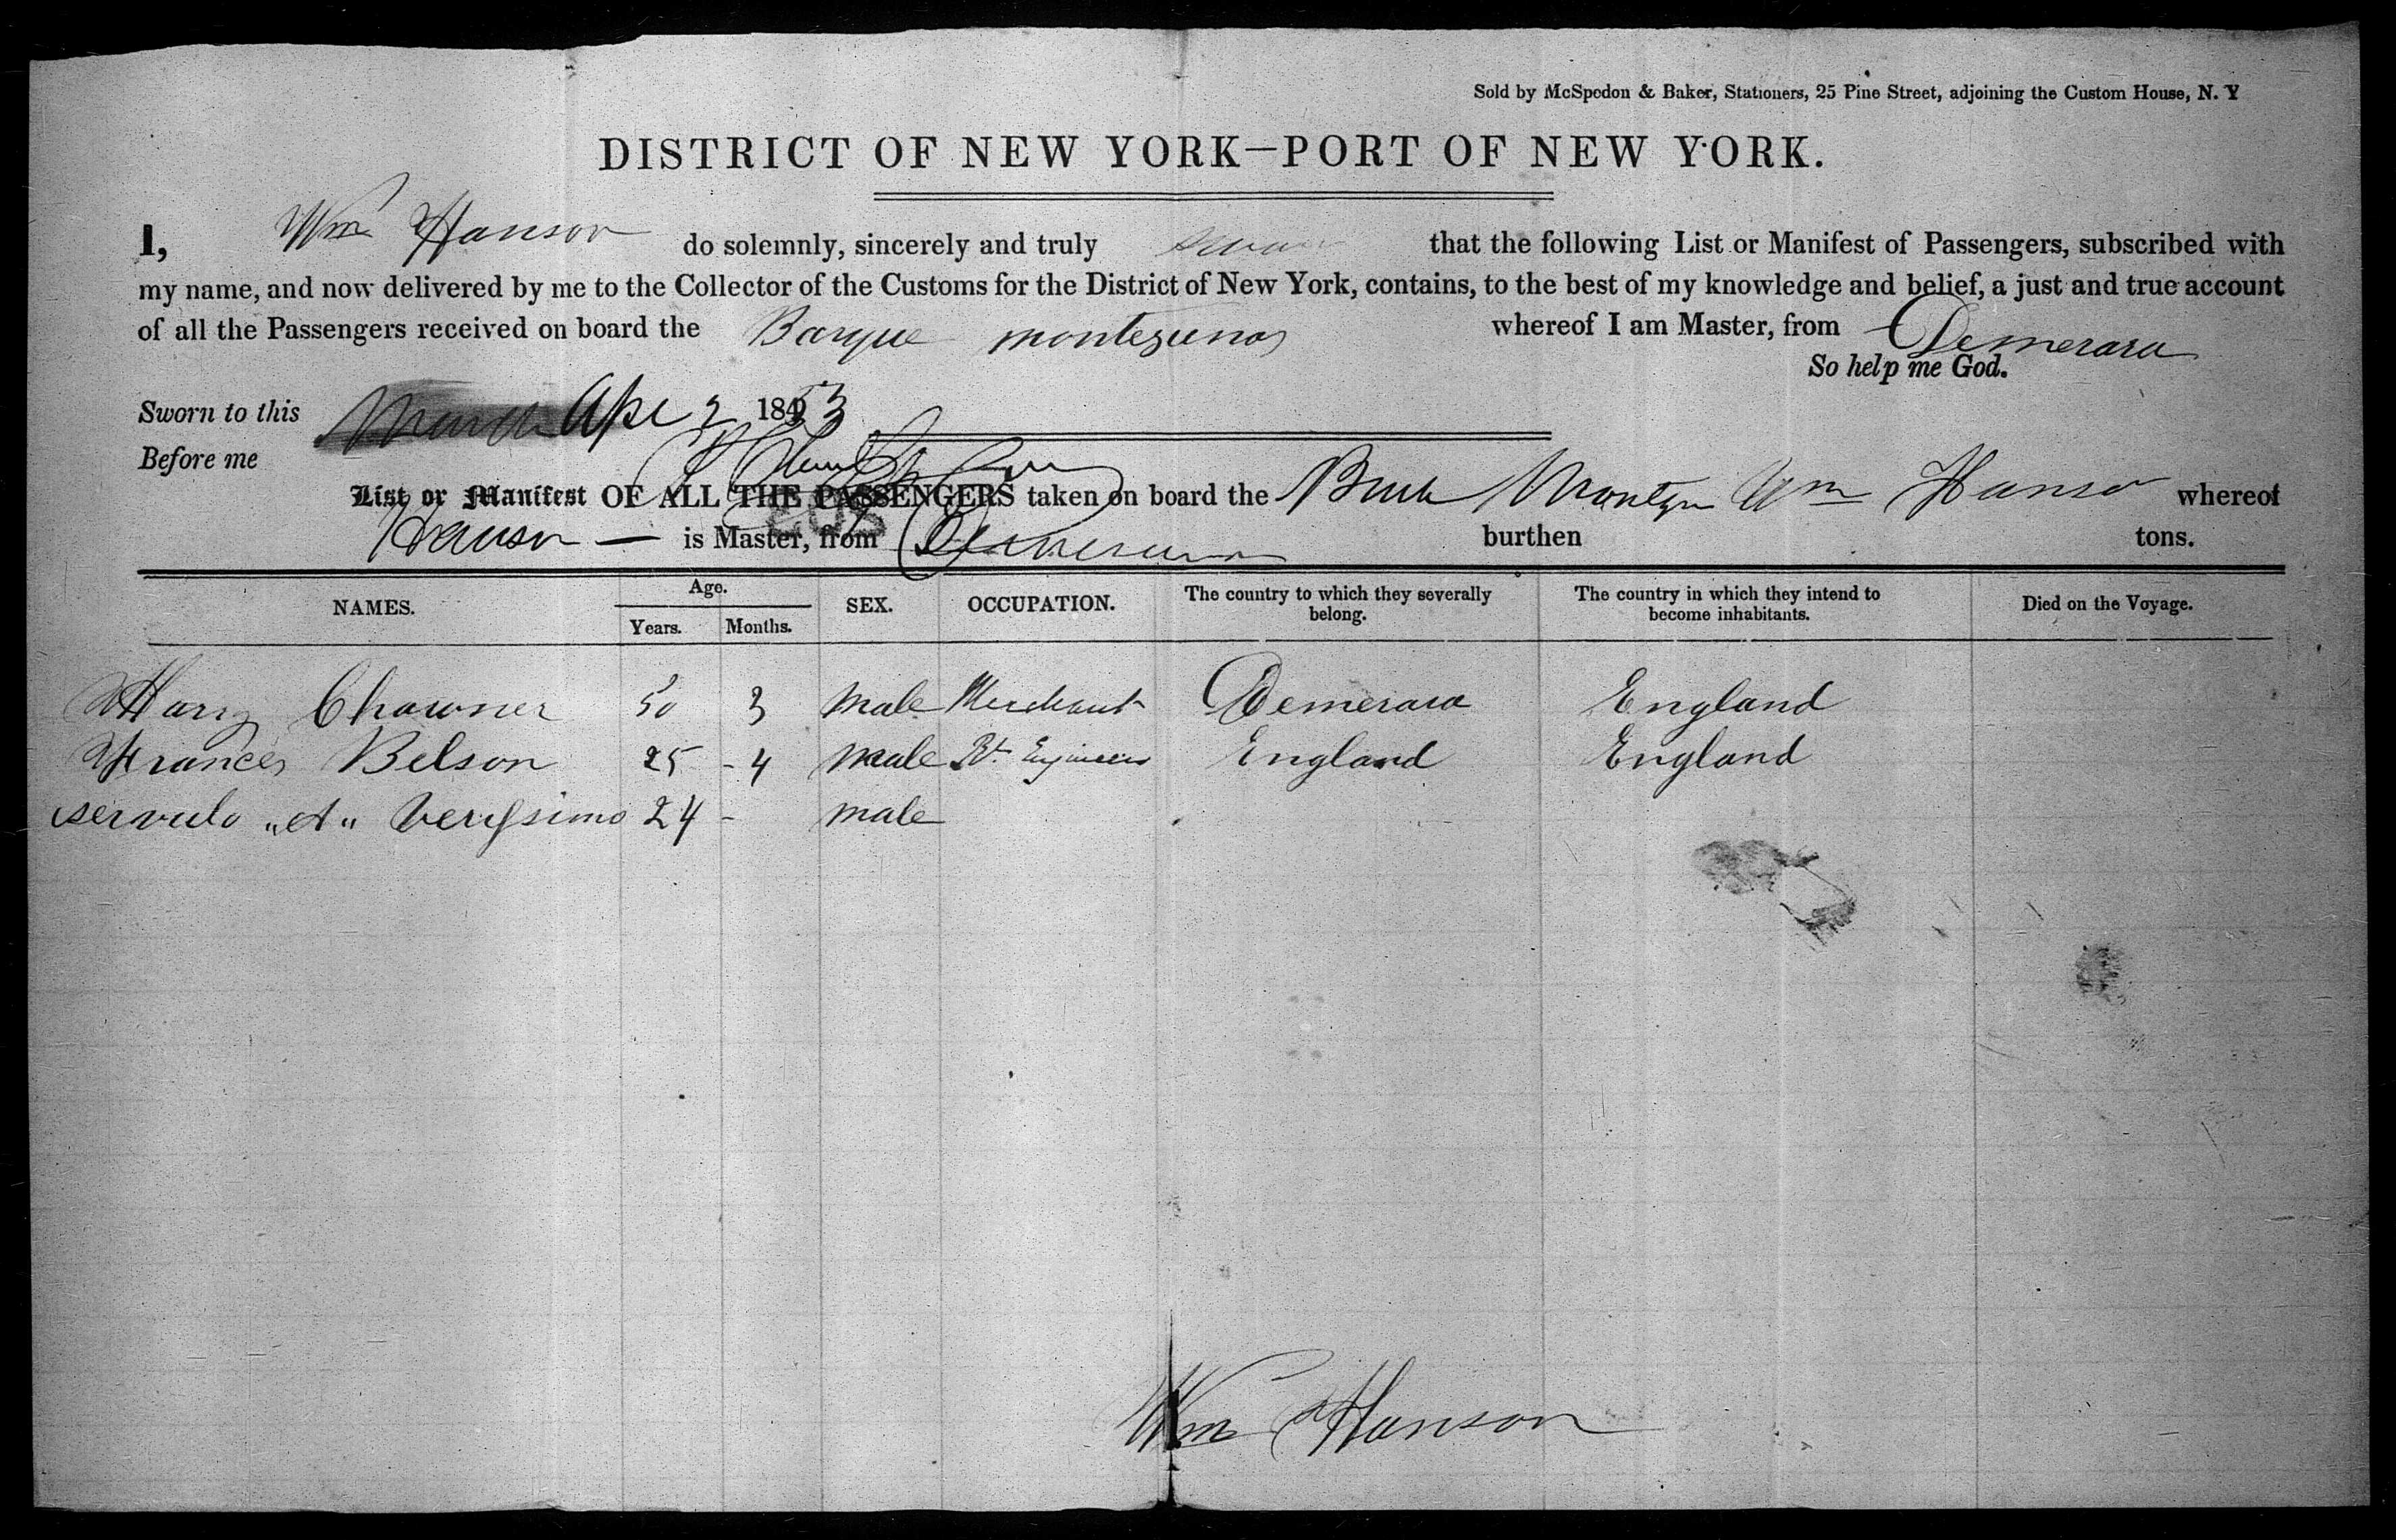 Sold by McSpedon & Baker, Stationers, 25 Pine Street, adjoining the Custom House, N. Y
DISTRICT OF NEW YORK—PORT OF NEW YORK.
I, Wm Hanson do solemnly, sincerely and truly swear that the following List or Manifest of Passengers, subscribed with
my name, and now delivered by me to the Collector of the Customs for the District of New York, contains, to the best of my knowledge and belief, a just and true account
of all the Passengers received on board the Barque montezumas whereof I am Master, from Demerara
So help me God.
Sworn to this March Apl 2 1853
Before me
List or Manifest OF ALL THE PASSENGERS taken on board the Wm Hanson whereof
Hanson — is Master, from Demerara burthen tons.
NAMES. Age. SEX. OCCUPATION. The country to which they severally belong. The country in which they intend to become inhabitants. Died on the Voyage.
Years. Months.
Harry Chawner 50 3 male Merchant Demerara England
Frances Belson 25 - 4 male Rl. Engineers England England
servulo "A" Verissimo 24 - male
Wm Hanson